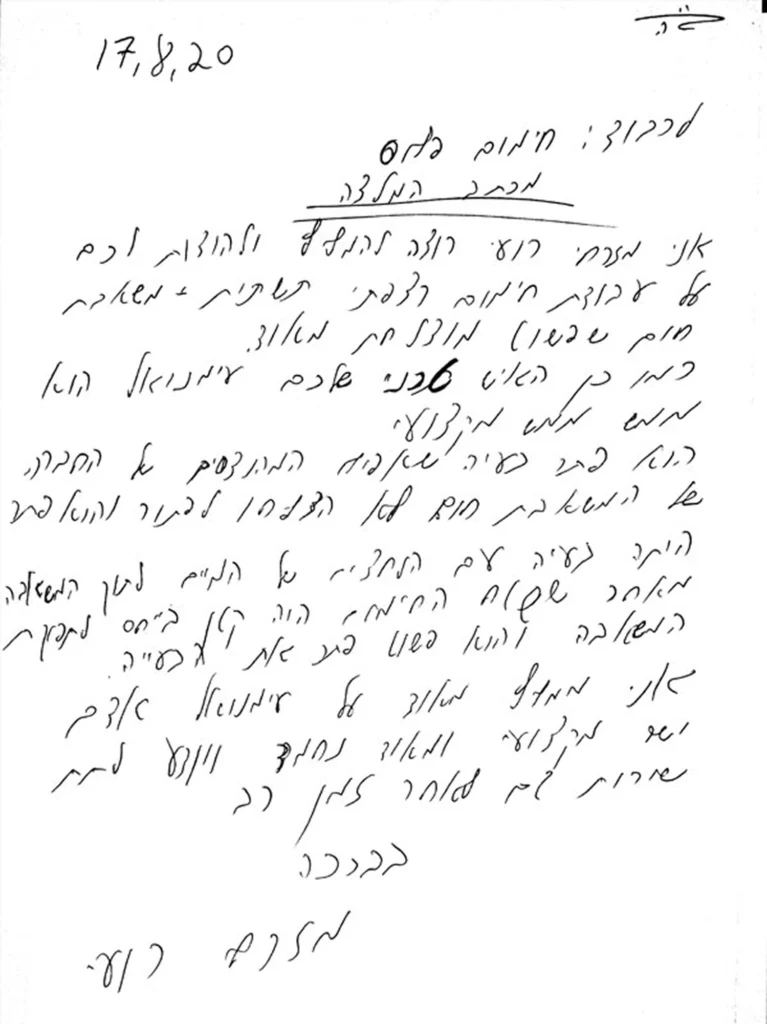 17.8.20
לכבוד: חימום פלוס
מכתב המלצה
אני מזרחי רועי רוצה להמליץ ולהודות לכם
על עבודת חימום רצפתי תשתית + משאבת
חום שפשוט מוצלחת מאוד.
כמו כן האיש טכני שלכם עימנואל הוא
ממש ממש מקצועי
הוא פתר בעיה שאפילו המהנדסים של החברה
של המשאבת חום לא הצליחו לפתור והוא פתר
היתה בעיה עם הלחצים של המים לתוך המשאבה
מאחר שלוח החימום היה קטן ביחס לתפוקת
המשאבה והוא פשוט פתר את הבעייה.
אני ממליץ מאוד על עימנואל אדם
ישר מקצועי ומאוד נחמד ויודע לתת
שירות גם לאחר זמן רב
בברכה
מזרחי רועי